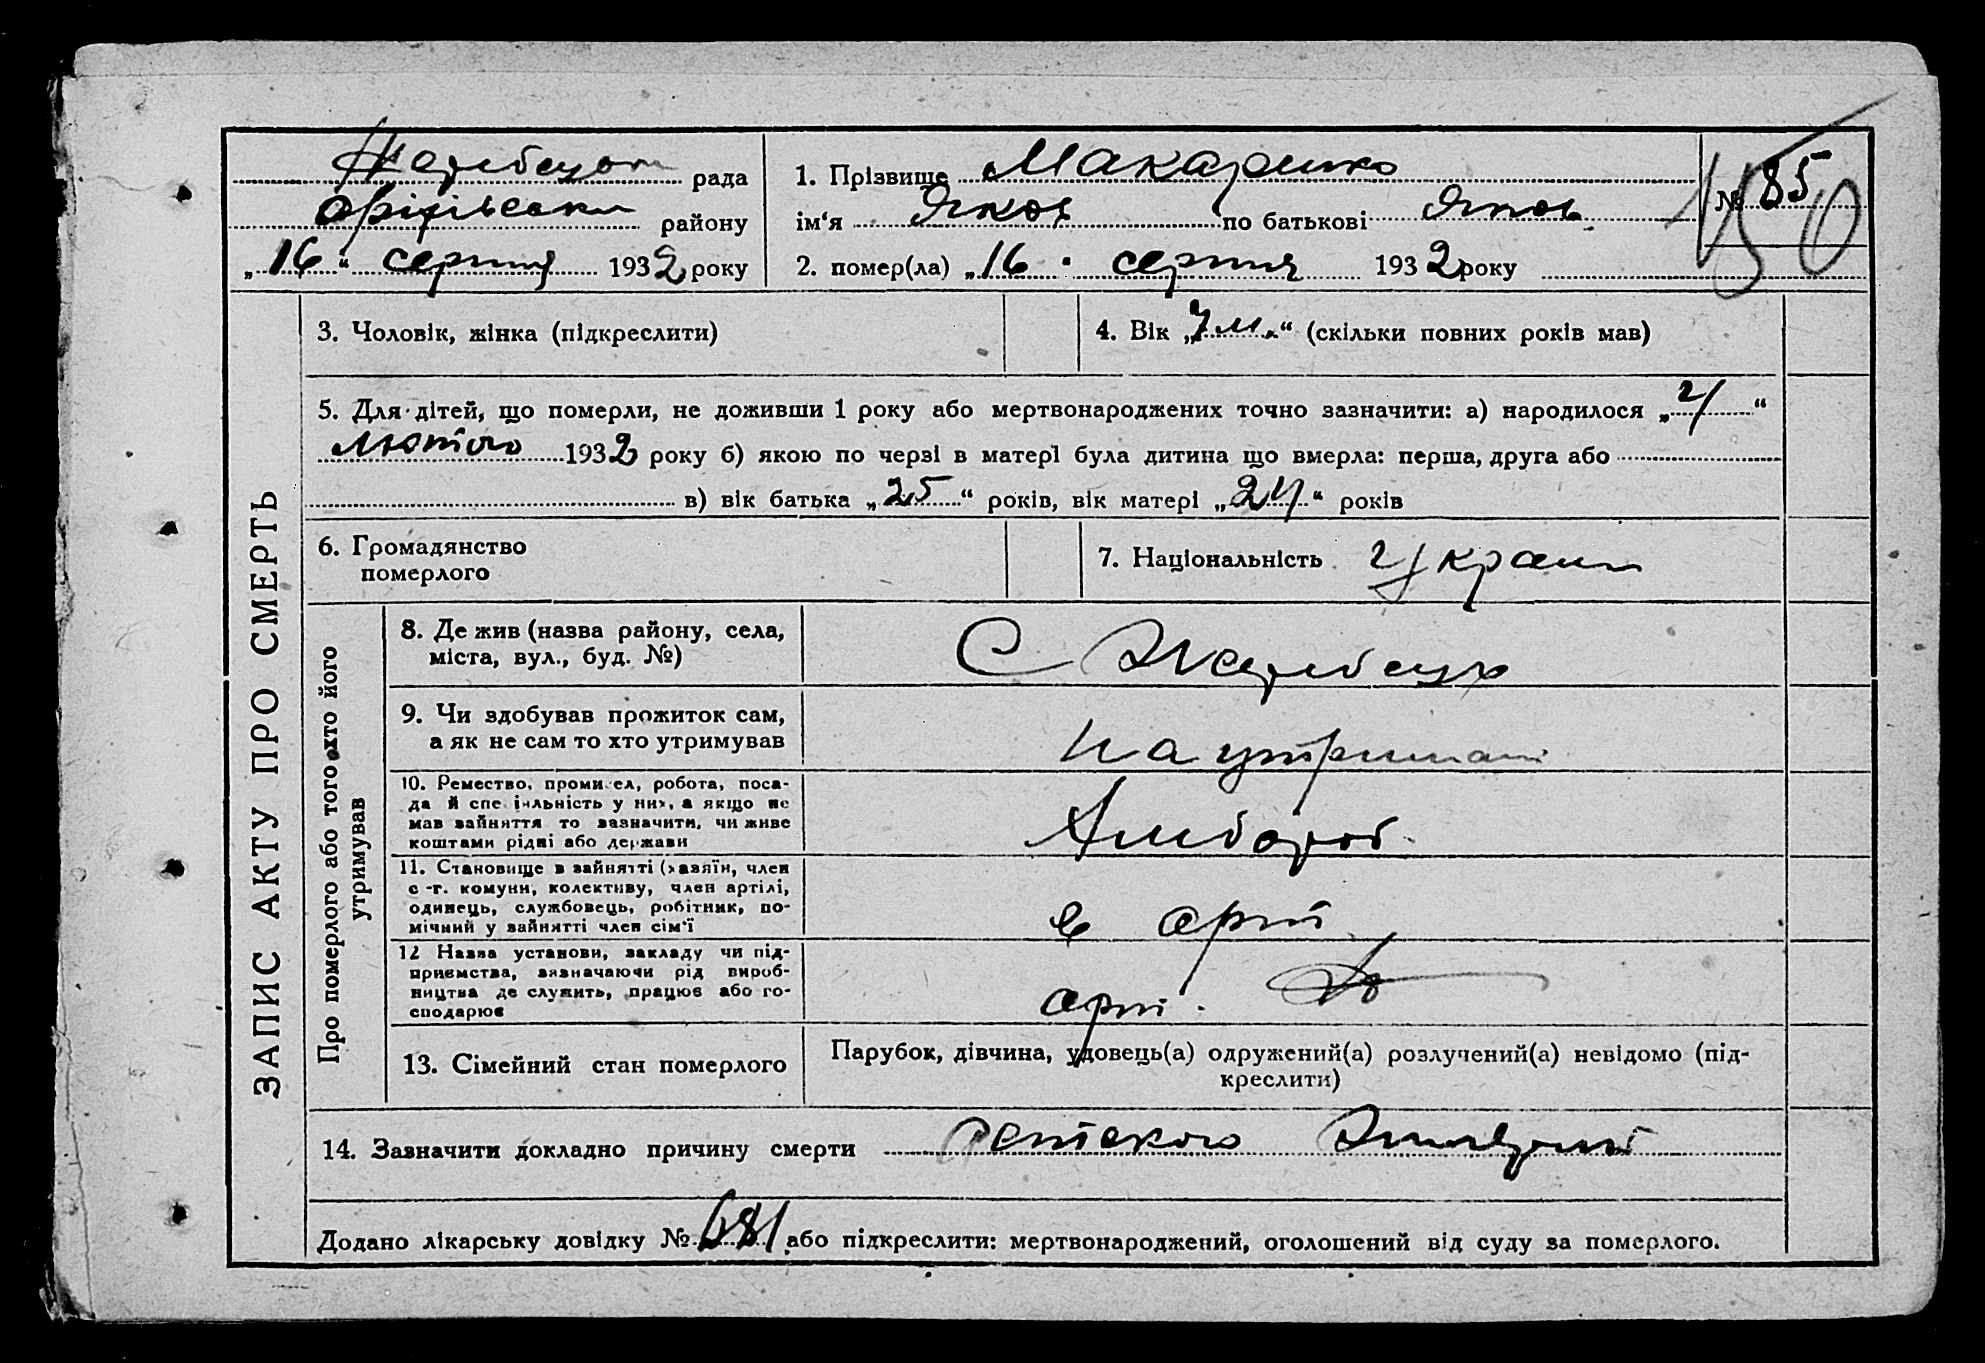 Жеребецька рада
Оріхівськи району
„16“ серпня 1932 року
1. Прізвище Макаренко
ім‘я Яков по батькові Яков
2. помер(ла) „16 серпня 1932 року
№ 85
150
ЗАПИС АКТУ ПРО СМЕРТЬ
3. Чоловік, жінка (підкреслити)
4. Вік „7 м.“ (скільки повних років мав)
5. Для дітей, що померли, не доживши 1 року або мертвонароджених точно зазначити: а) народилося „ “
лютого 1932 року б) якою по черзі в матері була дитина що вмерла: перша, друга або
в) вік батька „25“ років, вік матері „24“ років
6. Громадянство
померлого
7. Національність Украин
Про померлого або того хто його
утримував
8. Де жив (назва району, села,
міста, вул., буд. №)
С Жеребець
9. Чи здобував прожиток сам,
а як не сам то хто утримував
на утриман
10. Ремество, промисел, робота, поса-
да й спеціяльність у них, а якщо не
мав зайняття то зазначити, чи живе
коштами рідні або держави
Хлибороб
11. Становище в зайнятті (хазяїн, член
с.-г. комуни, колективу, член артілі,
одинець, службовець, робітник, по-
мічний у зайнятті член сім‘ї
в арт
12 Назва установи, закладу чи під-
приємства, зазначаючи рід вироб-
ництва де служить, працює або го-
сподарює
арт.
13. Сімейний стан померлого
Парубок, дівчина, удовець(а) одружений(а) розлучений(а) невідомо (під-
креслити)
14. Зазначити докладно причину смерти
Додано лікарську довідку № 681 або підкреслити: мертвонароджений, оголошений від суду за померлого.